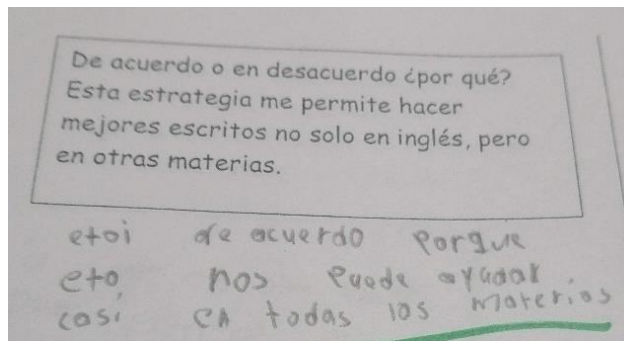 De acuerdo o en desacuerdo ¿por qué?
Esta estrategia me permite hacer
mejores escritos no solo en inglés, pero
en otras materias.
etoi de acuerdo porque
eto nos puede ayudar
casi en todas las materias